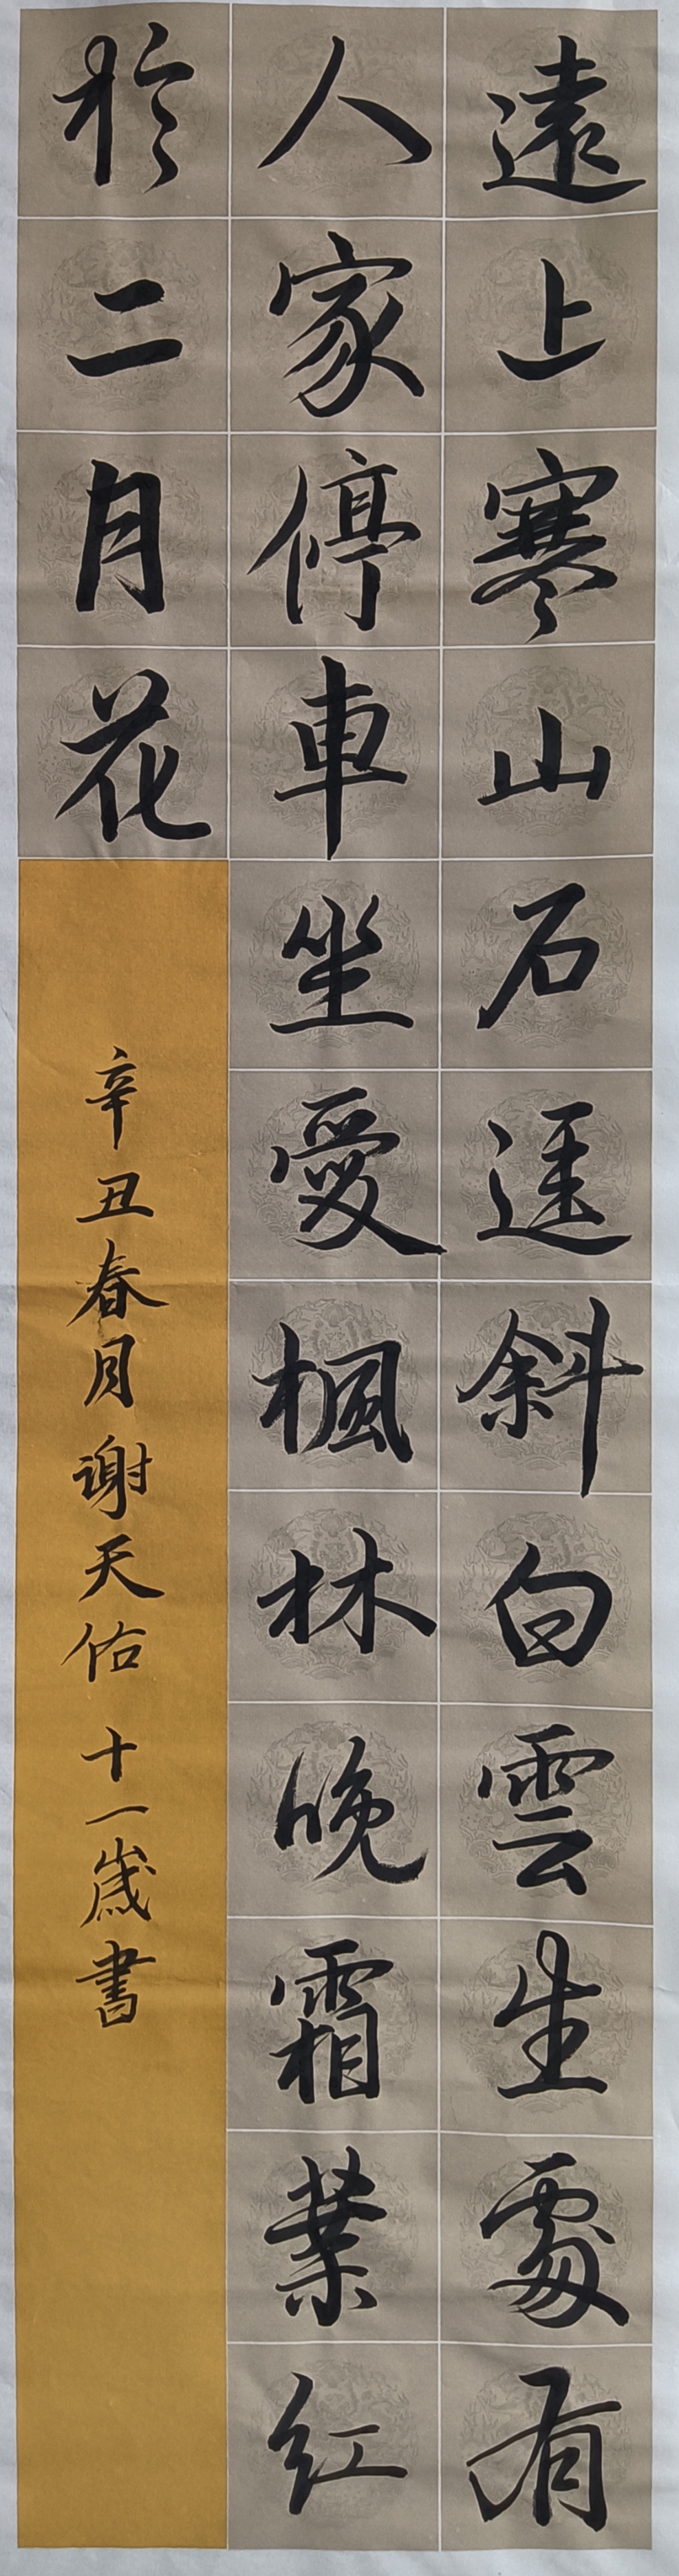 遠上寒山石逕斜白雲生處有
人家停車坐愛楓林晚霜葉红
於二月花
辛丑春月谢天佑十一歲書